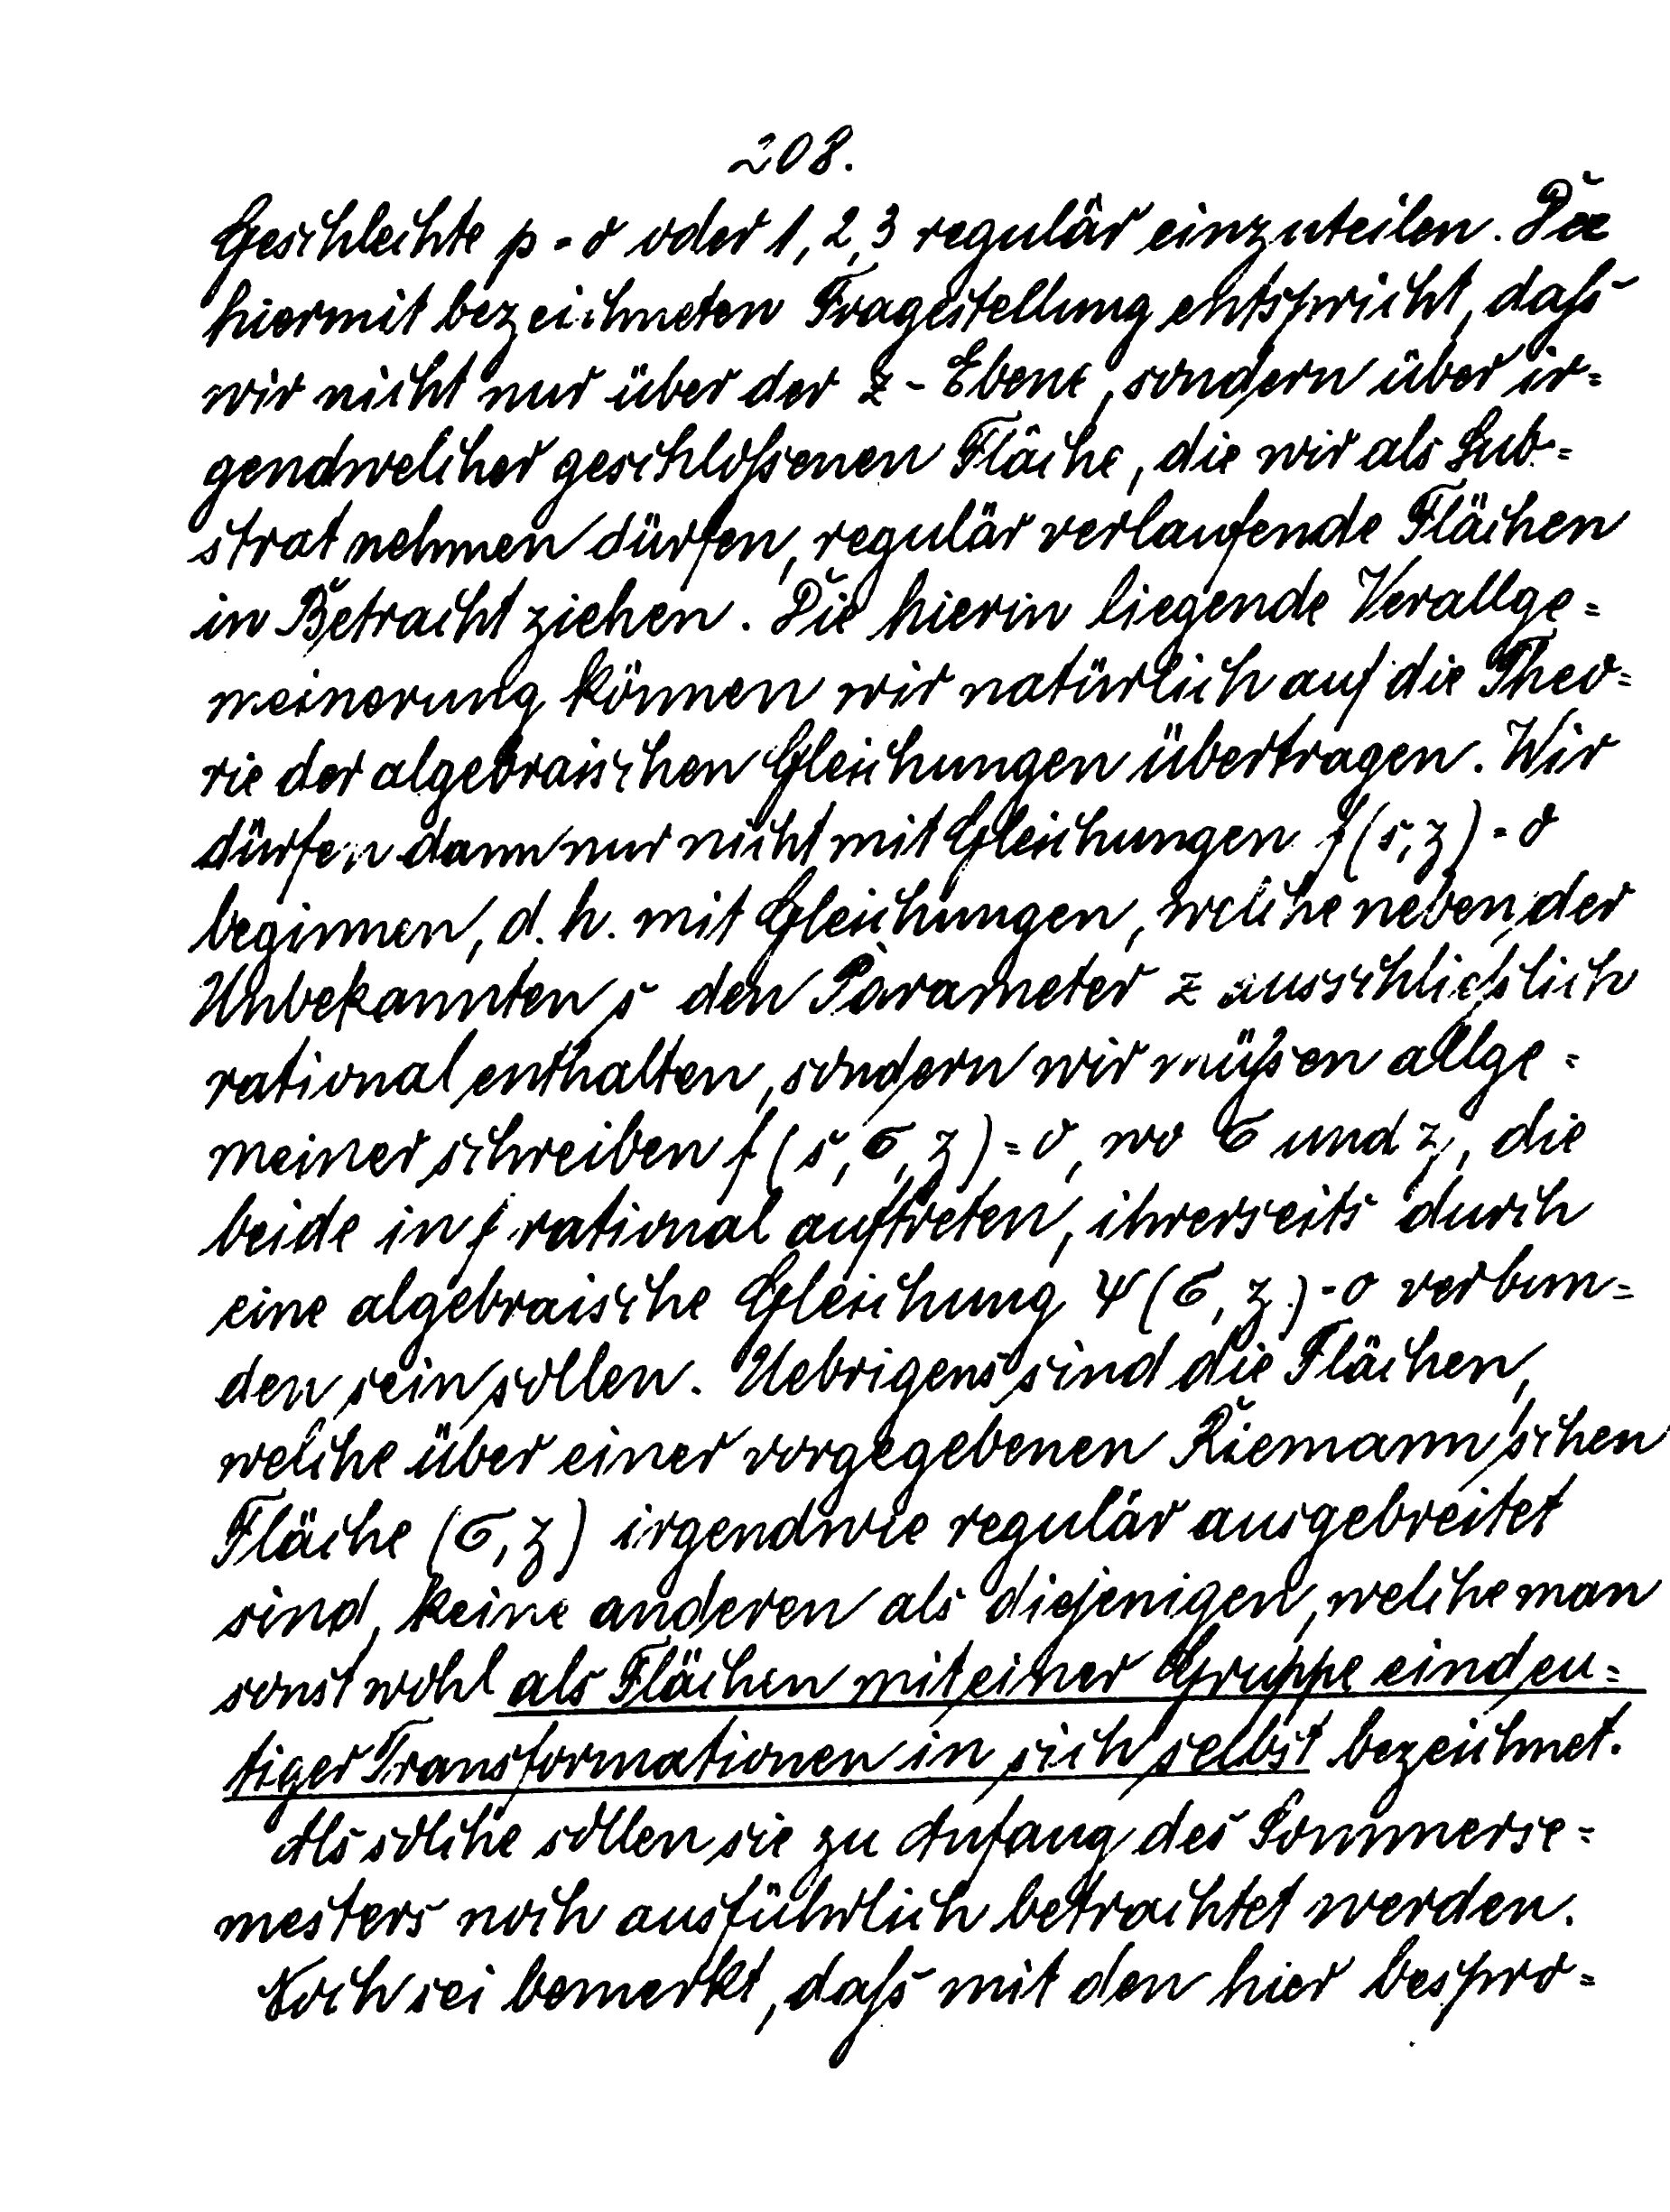 208.
Geschlechte p = 0 oder 1, 2, 3 regulär einzuteilen. Der
hiermit bezeichneten Fragestellung entspricht, daß
wir nicht nur über der z - Ebene, sondern über ir=
gendwelcher geschloßenen Fläche, die wir als Sub=
strat nehmen dürfen, regulär verlaufende Flächen
in Betracht ziehen. Die hierin liegende Verallge=
meinerung können wir natürlich auf die Theo=
rie der algebraischen Gleichungen übertragen. Wir
dürfen dann nur nicht mit Gleichungen f(s, z) = 0
beginnen, d. h. mit Gleichungen, welche neben der
Unbekannten s den Parameter z ausschließlich
rational enthalten, sondern wir müßen allge=
meiner schreiben f(s, σ, z) = 0, wo σ und z, die
beide in f rational auftreten, ihrerseits durch
eine algebraische Gleichung Ψ(σ, z) = 0 verbun=
den sein sollen. Uebrigens sind die Flächen,
welche über einer vorgegebenen Riemann'schen
Fläche (σ, z) irgendwie regulär ausgebreitet
sind, keine anderen als diejenigen, welche man
sonst wohl als Flächen mit einer Gruppe eindeu=
tiger Transformationen in sich selbst bezeichnet.
Als solche sollen sie zu Anfang des Sommerse=
mesters noch ausführlich betrachtet werden.
Noch sei bemerkt, daß mit den hier bespro=